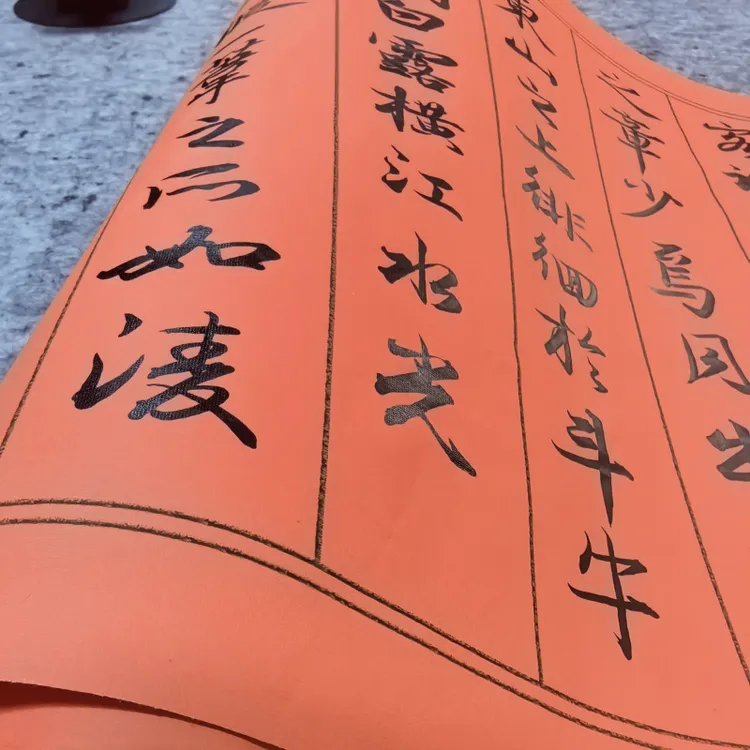 之章少焉月出
東山之上徘徊於斗牛
白露橫江水光
一葦之所如凌